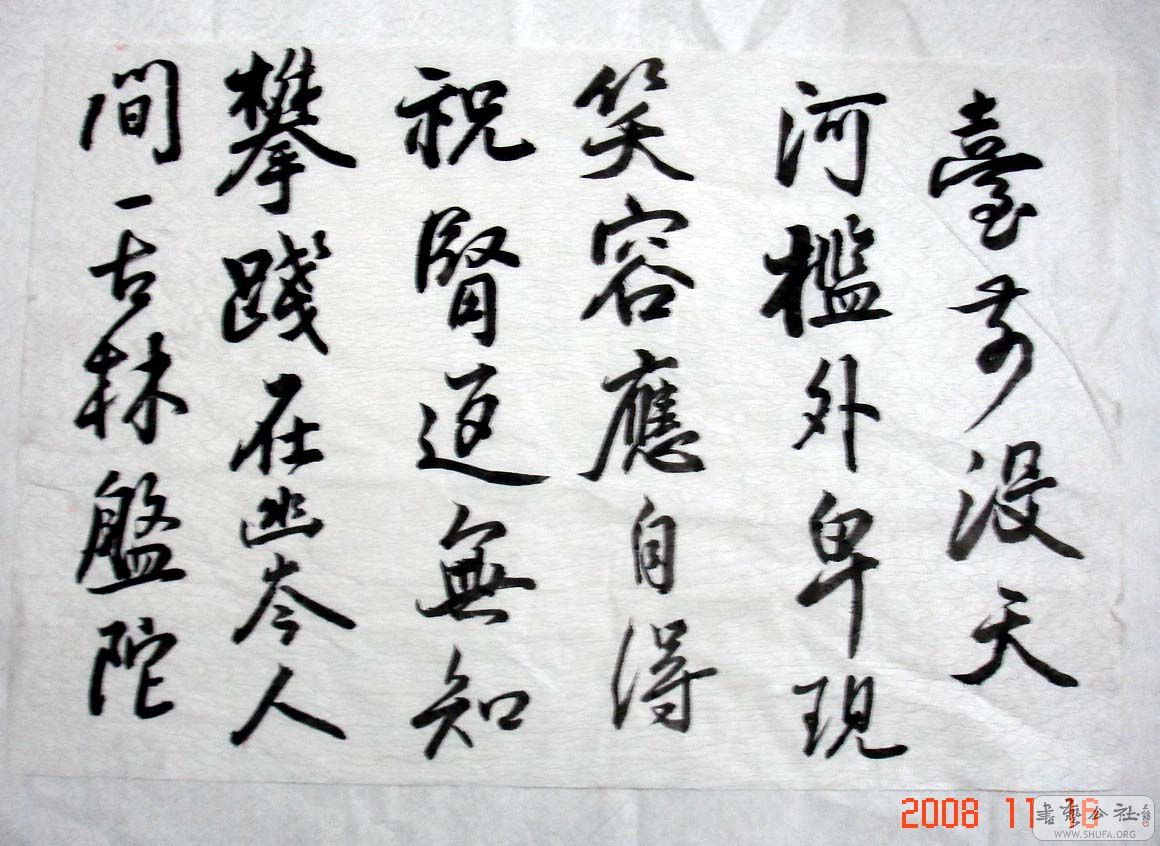 臺前没天
河檻外卑現
笑容應自得
祝腎道無知
攀踐在幽岑人
間一古林盤陀
2008 11 16
書藝公社
WWW.SHUFA.ORG